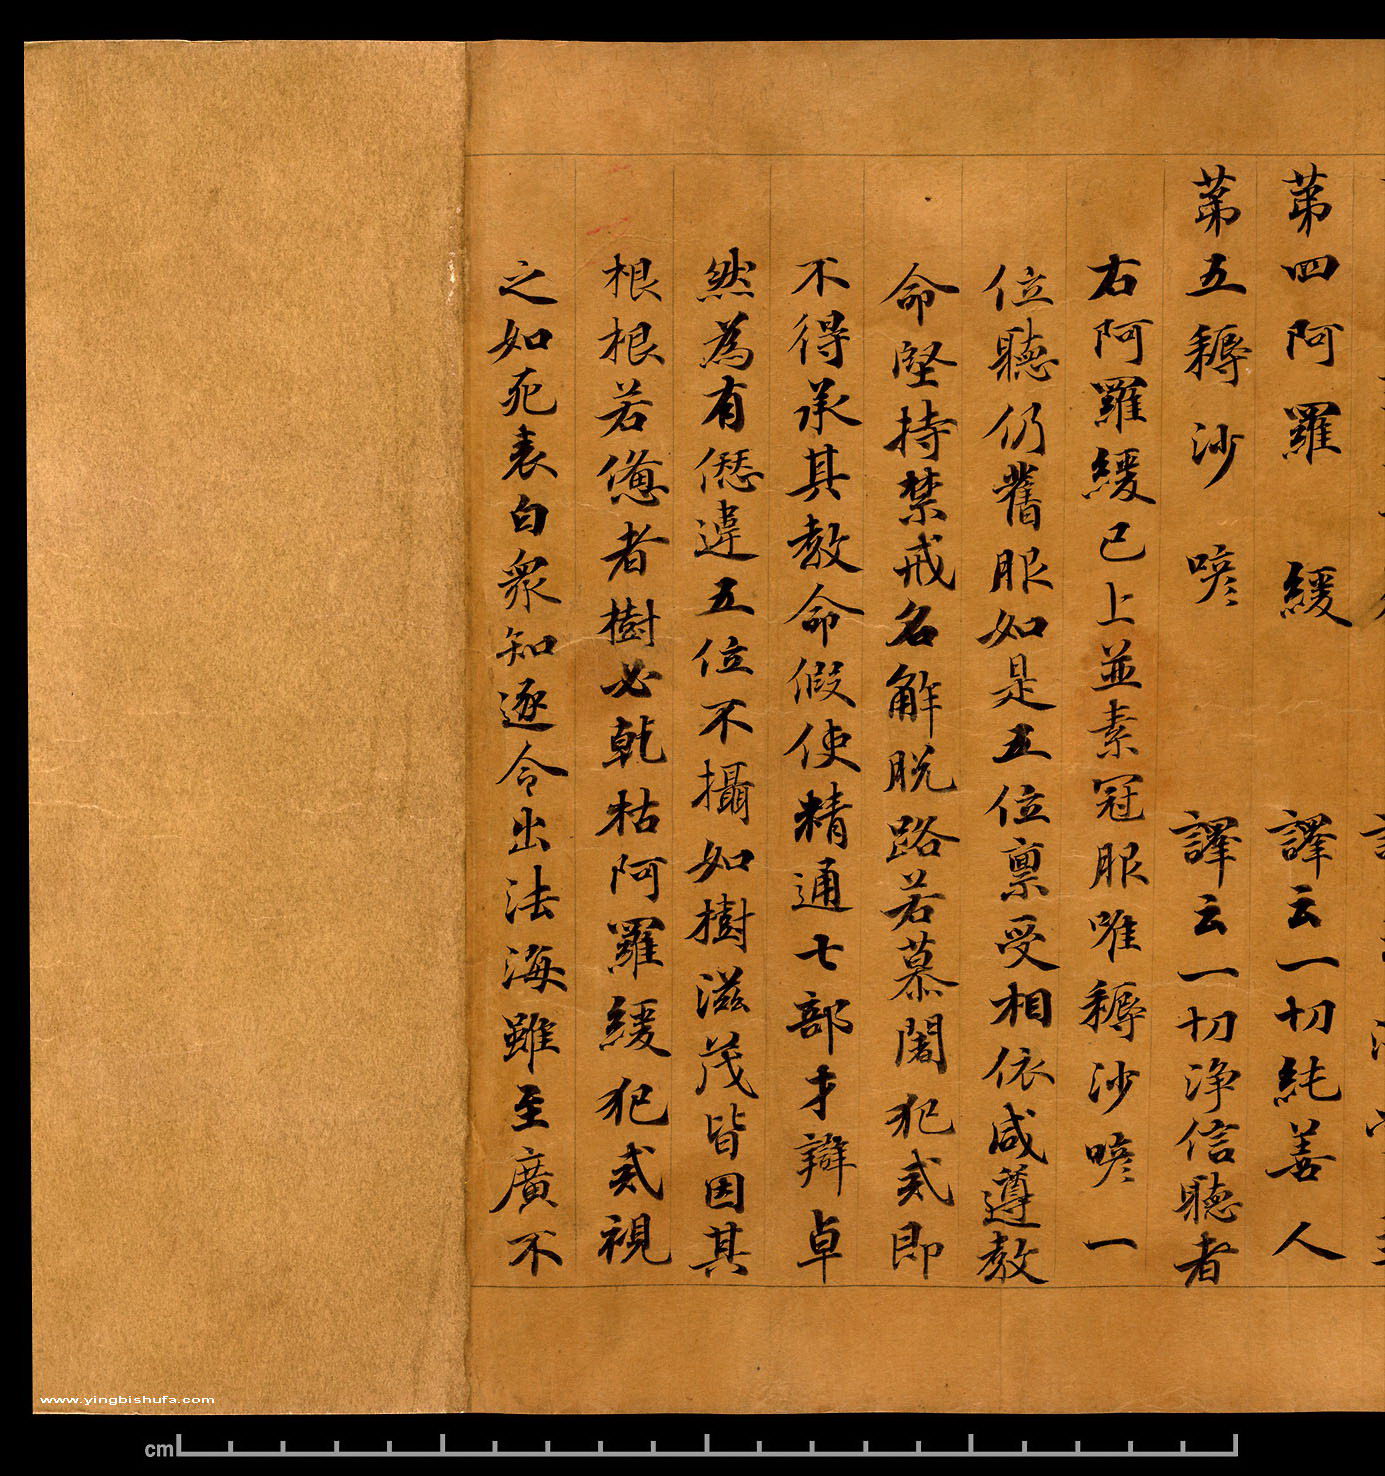 第四阿羅緩 譯云一切純善人
第五耨沙喭 譯云一切淨信聽者
右阿羅緩已上並素冠服唯耨沙喭一
位聽仍舊服如是五位禀受相依咸遵教
命堅持禁戒名解脱路若慕闍犯戒即
不得承其教命假使精通七部才辯卓
然為有𠎝違五位不攝如樹滋茂皆因其
根根若憊者樹必乾枯阿羅緩犯戒視
之如死表白衆知逐令出法海雖至廣不
www.yingbishufa.com
cm